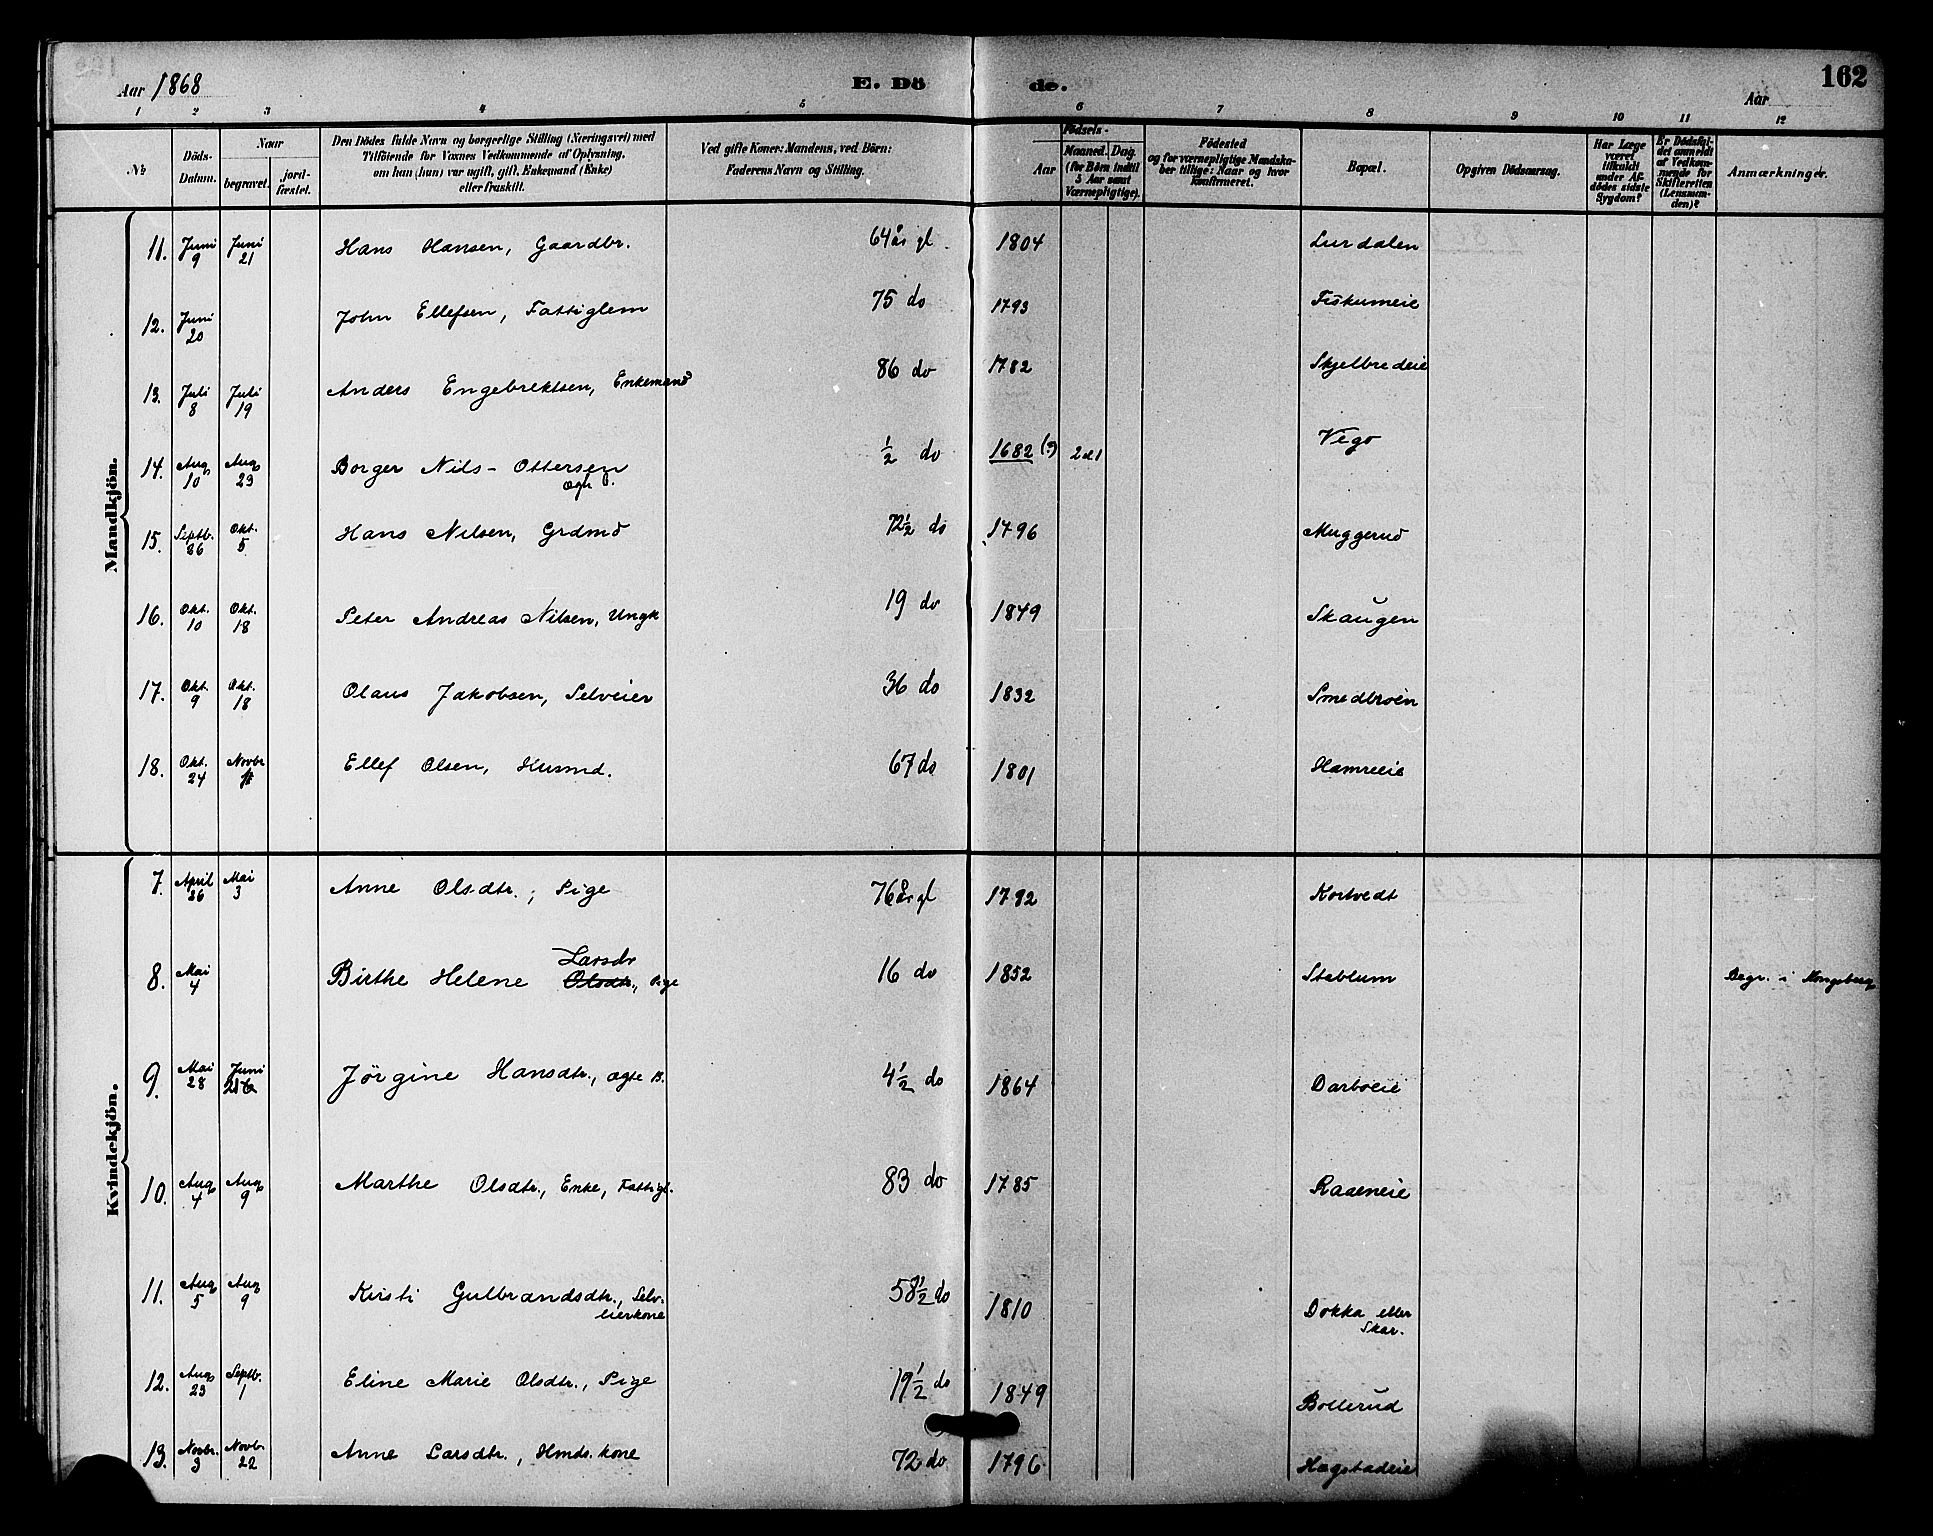 Aar 1868
E. Dö
de.
Aar
162
1 2 3 4 5 6 7 8 9 10 11 12
No
Döds-
Datum.
Naar
begravet.
jord-
fæstet.
Den Dödes fulde Navn og borgerlige Stilling (Næringsvei) med
Tilföiende for Voxnes Vedkommende af Oplysning,
om han (hun) var ugift, gift, Enkemand (Enke)
eller fraskilt.
Ved gifte Koner: Mandens, ved Börn:
Faderens Navn og Stilling.
Födsels-
Aar
Maaned. Dag
(for Börn indtil
5 Aar samt
Værnepligtige).
Födested
og for værnepligtige Mandska-
ber tillige: Naar og hvor
konfirmeret.
Bopæl.
Opgiven Dödsaarsag.
Har Læge
været
tilkaldt
under Af-
dödes sidste
Sygdom?
Er Dödsfal-
det anmeldt
af Vedkom-
mende for
Skifteretten
(Lensman-
den)?
Anmærkninger.
Mandkjön.
11. Juni 9 Juni 21 Hans Hansen, Gaardbr. 64 år gl. 1804 Lurdalen
12. Juni 20 John Ellefsen, Fattiglem 75 do 1793 Fiskumeie
13. Juli 8 Juli 19 Anders Engebrektsen, Enkemand 86 do 1782 Skjelbredeie
14. Aug 10 Aug 23 Borger Nils - Ottersen ægte 1/2 do 1682 (?) Vego
15. Septb. 26 Okt. 5 Hans Nilsen, Grdmd 72 1/2 do 1796 Muggerud
16. Okt. 10 Okt. 18 Peter Andreas Nilsen, Ungk 19 do 1849 Skaugen
17. Okt. 9 Okt. 18 Olaus Jakobsen, Selveier 36 do 1832 Smedbroen
18. Okt. 24 Novbr Ellef Olsen, Husmd. 67 do 1801 Hamreeie
Kvindekjön.
7. April 26 Mai 3 Anne Olsdtr., Pige 76 år gl 1792 Kortvedt
8. Mai 4 Birthe Helene Olsdtr. Larsdr, Pige 16 do 1852 Stablum Begr. i Kongsberg
9. Mai 28 Juni Jørgine Hansdtr., ægte B. 4 1/2 do 1864 Darboeie
10. Aug 4 Aug 9 Marthe Olsdtr., Enke, Fattigl. 83 do 1785 Raaeneie
11. Aug 5 Aug 9 Kirsti Gulbrandsdtr., Selv-
eierkone 58 1/2 do 1810 Dokka eller
Skar.
12. Aug 23 Septb. 1 Eline Marie Olsdtr., Pige 19 1/2 do 1849 Bollerud
13. Novbr. 3 Novb. 22 Anne Larsdtr., Hmds. kone 72 do 1796 Hagstadeie